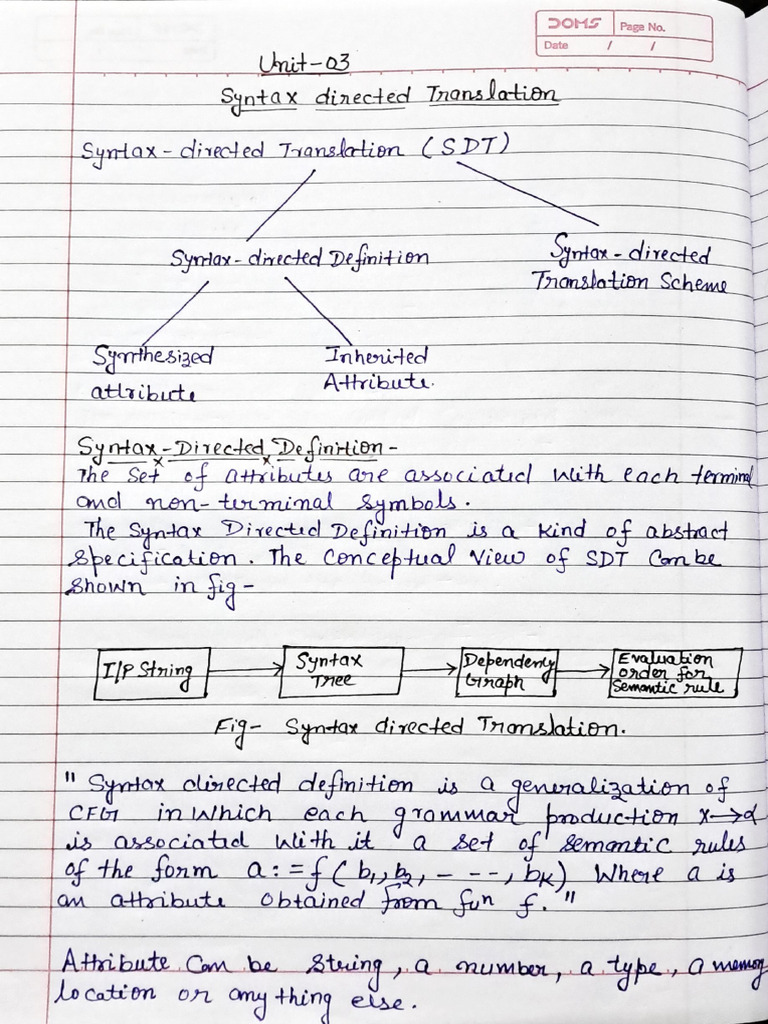 DOMS
Page No.
Date / /
Unit-03
Syntax directed Translation
Syntax-directed Translation (SDT)
Syntax-directed Definition
Syntax-directed
Translation Scheme
Synthesized
attribute
Inherited
Attribute.
Syntax-Directed Definition-
The Set of attributes are associated with each terminal
and non-terminal symbols.
The Syntax Directed Definition is a kind of abstract
Specification. The Conceptual View of SDT Can be
Shown in fig-
I/P String
Syntax
Tree
Dependency
Graph
Evaluation
order for
Semantic rule
Fig- Syntax directed Translation.
" Syntax directed definition is a generalization of
CFG in which each grammar production X→α
is associated with it a set of semantic rules
of the form a:=f(b1,b2,----,bK) Where a is
an attribute obtained from fun f."
Attribute Can be String, a number, a type, a memory
location or any thing else.